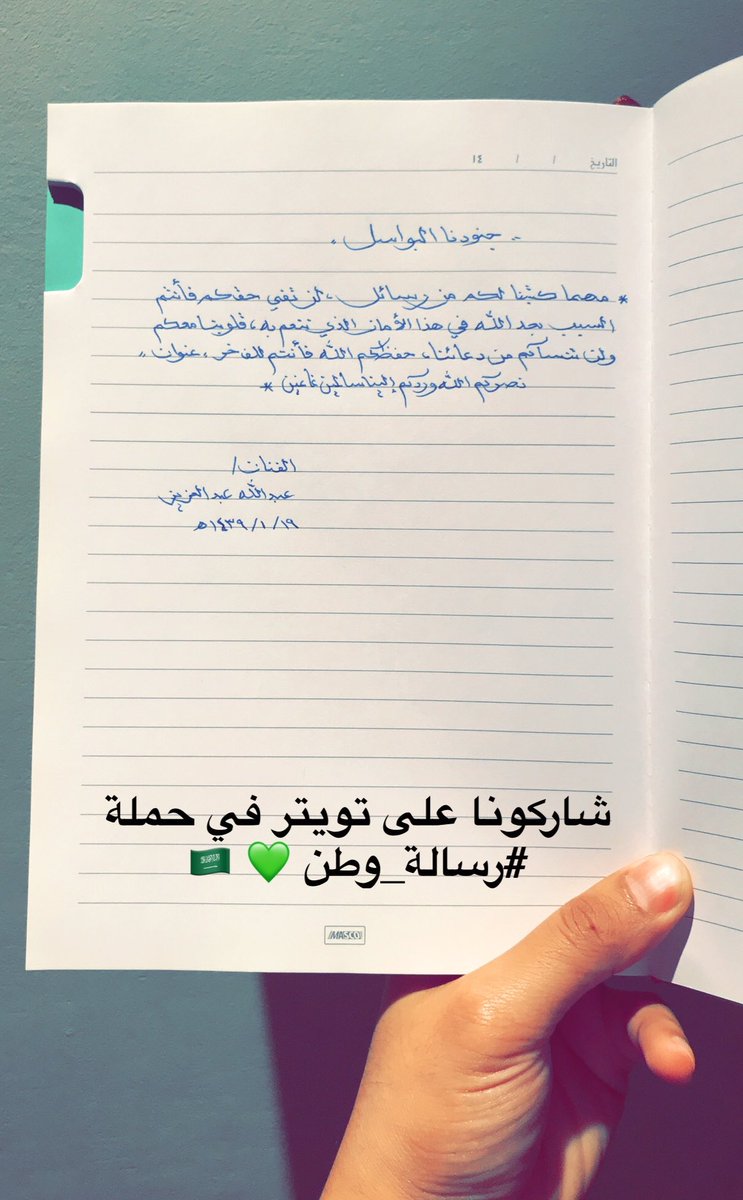 التاريخ / / ١٤
~ جنودنا البواسل ~
* مهما كتبنا لكم من رسائل ، لن تفي حقكم فأنتم
السبب بعد الله في هذا الأمان الذي ننعم به ، قلوبنا معكم
ولن ننساكم من دعائنا ، حفظكم الله فأنتم للفخر ، عنوان ،،
نصركم الله وردكم إلينا سالمين غانمين *
الفنان /
عبدالله عبدالعزيز
١٤٣٩/١/١٩هـ
شاركونا على تويتر في حملة
#رسالة_وطن 💚 🇸🇦
MASCO